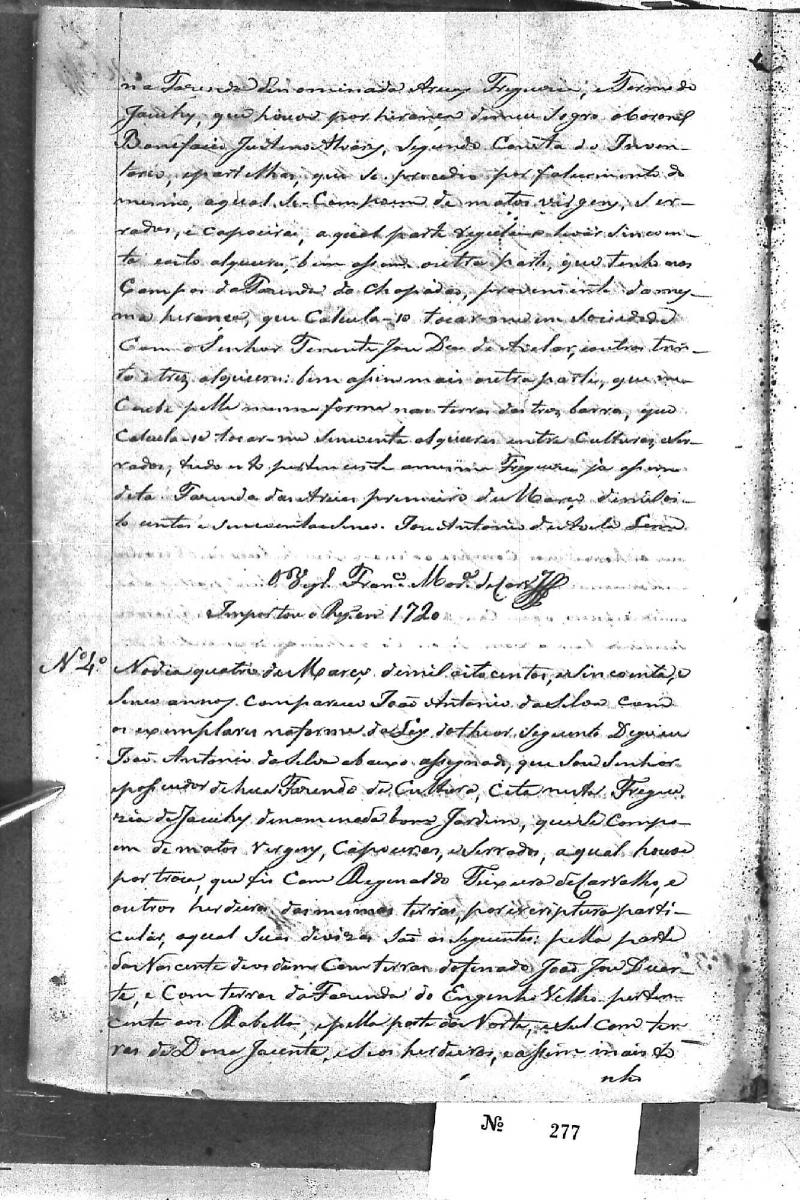 na Fazenda denominada Areas Freguezia, e Termo de
Jacuhy, que houve por herança de meu Sogro o Coronel
Bonifacio Justino Alvares, segundo Consta do Inven-
tario, e partelhas, que se procedeo por falecimento do
mesmo, a qual se Compoem de matos virgens, Ser-
rados, e capoeiras, a qual parte levar Sincoen-
ta e oito alqueires; bem assim outra parte, que tenho nos
Campos da Fazenda da Chapada, proveniente da mes-
ma herança, que Calcula-se tocar-me em Sociedade
Com o Senhor Tenente Joze Dias de Avelar, e outros trin-
ta e trez alqueires: bem assim mais outra parte, que me
Coube pella mesma forma nas terras das trez barras, que
Calcula-se tocar-me Sincoenta alqueires entre Culturas, e Ser-
rados, tudo isto pertencente a mesma Freguezia ja assim
dita Fazenda das Areias primeiro de Março de mil oi-
to centos e Sincoenta e Sinco. Joze Antonio de Avila Lemos
O Vigr.º Franc.º Mor.ª de Carv.º
Importou o Reg. em 1720
Nº 4º No dia quatro de Março de mil oitocentos, e Sincoenta, e
Sinco annos compareceo João Antonio da Silva com
os exemplares na forma da Ley do theor Seguinte Digo eu
João Antonio da Silva abaixo assignado, que Sou Senhor
e possuidor de hua Fazenda de Cultura, Cita nesta Fregue
zia de Jacuhy denomeneda bom Jardim, que Se Compo-
em de matos Virgens, Capoeiras, e Serrados, a qual houve
por troca, que fis Com Reginaldo Teixeira de Carvalho, e
outros herdeiros das mesmas terras, por iscriptura parti-
cular, a qual Suas devizas São as Seguintes: pella parte
do Nascente devidem Com terras do finado João Joze Duar-
te, e Com terras da Fazenda do Engenho Velho perten-
cente aos Rabello, e pella parte do Norte, e Sul Com ter-
ras de Dona Jacinta, e Seos herdeiros, e assim mais te
nho
Nº 277